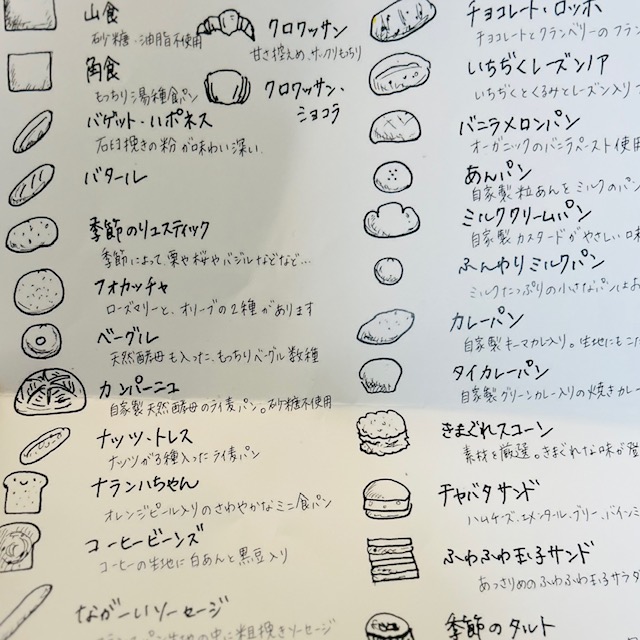 山食
砂糖、油脂不使用
角食
もっちり湯種食パン
バゲット・ハポネス
石臼挽きの粉が味わい深い
バタール
季節のリュスティック
季節によって、栗や桜やバジルなどなど…
フォカッチャ
ローズマリーと、オリーブの2種があります
ベーグル
天然酵母も入った、もっちりベーグル数種
カンパーニュ
自家製天然酵母のライ麦パン。砂糖不使用
ナッツ・トレス
ナッツが3種入ったライ麦パン
ナランハちゃん
オレンジピール入りのさわやかなミニ食パン
コーヒービーンズ
コーヒーの生地に白あんと黒豆入り
ながーいソーセージ
フランスパン生地の中に粗挽きソーセージ
クロワッサン
甘さ控えめ、サックリもちり
クロワッサン・
ショコラ
チョコレート・ロッホ
チョコレートとクランベリーのフラン
いちぢくレーズンノア
いちぢくとくるみとレーズン入り
バニラメロンパン
オーガニックのバニラペースト使用
あんパン
自家製粒あんとミルクのパン
ミルククリームパン
自家製カスタードがやさしい
ふんわりミルクパン
ミルクたっぷりの小さなパンは
カレーパン
自家製キーマカレー入り。生地にもこだ
タイカレーパン
自家製グリーンカレー入りの焼きカレー
きまぐれスコーン
素材を厳選。きまぐれな味が登
チャバタサンド
ハムチーズ、エメンタール、ブリー、パインミ
ふわふわ玉子サンド
あっさりめのふわふわ玉子サラダ
季節のタルト